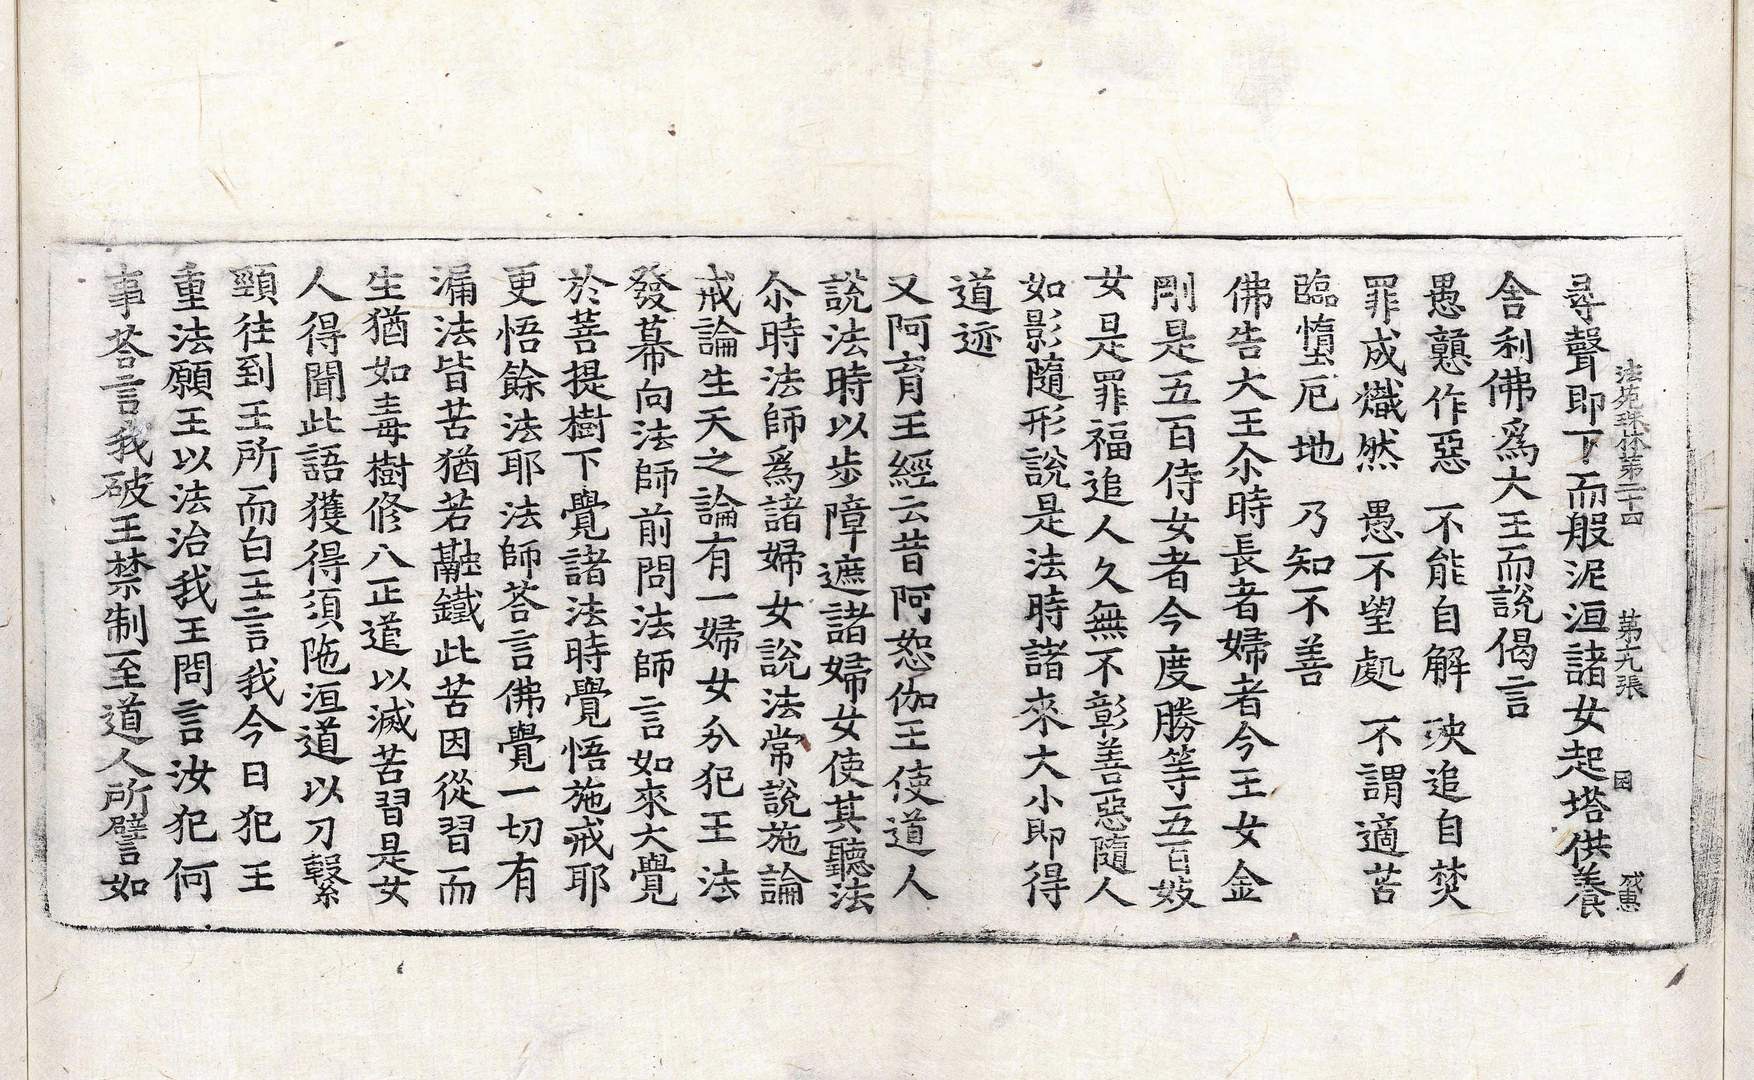 法苑珠林第二十四 第九張 因 戒惠
尋聲即下而般泥洹諸女起塔供養
舍利佛爲大王而說偈言
愚戇作惡 不能自解 殃追自焚
罪成熾然 愚不望處 不謂適苦
臨墮厄地 乃知不善
佛告大王尒時長者婦者今王女金
剛是五百侍女者今度勝等五百妓
女是罪福追人久無不彰善惡隨人
如影隨形說是法時諸來大小即得
道迹
又阿育王經云昔阿恕伽王使道人
說法時以步障遮諸婦女使其聽法
尒時法師爲諸婦女說法常說施論
戒論生天之論有一婦女分犯王法
發幕向法師前問法師言如來大覺
於菩提樹下覺諸法時覺悟施戒耶
更悟餘法耶法師荅言佛覺一切有
漏法皆苦猶若融鐵此苦因從習而
生猶如毒樹修八正道以滅苦習是女
人得聞此語獲得須陁洹道以刀繫
頸往到王所而白王言我今日犯王
重法願王以法治我王問言汝犯何
事荅言我破王禁制至道人所譬如